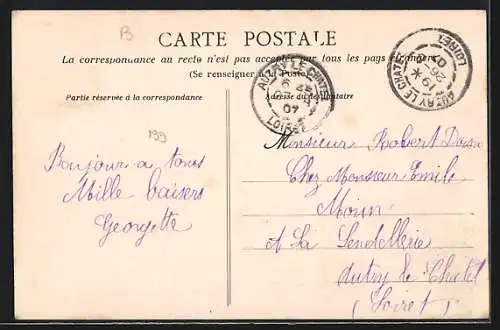 B
CARTE POSTALE
La correspondance au recto n'est pas acceptée par tous les pays étrangers
(Se renseigner à la Poste)
Partie réservée à la correspondance
Adresse du destinataire
AUTRY LE CHATEL
LOIRET
07
AUTRY LE CHATEL
LOIRET
199
Bonjour a tous
Mille baisers
Georgette
Monsieur Robert
Chez Monsieur Emile
Morin
A La
Autry le Chatel
(Loiret)